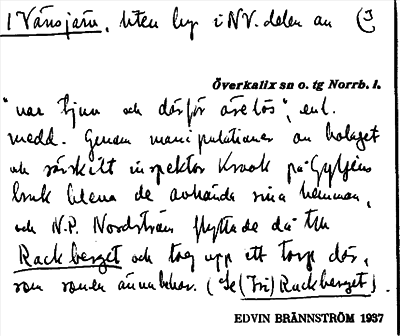 1 Vänsjärv, liten by i NV. delen av (3
Överkalix sn o. tg Norrb. l.
"var tjuv och därför ärelös", enl.
medd. Genom manipulationer av bolaget
och särskilt inspektor Krook på Gyljens
bruk blevo de avhända sina hemman,
och N.P. Nordström flyttade då till
Rackberget och tog upp ett torp där,
som sonen ännu
(Se (Tri) Rackberget).
EDVIN BRÄNNSTRÖM 1937